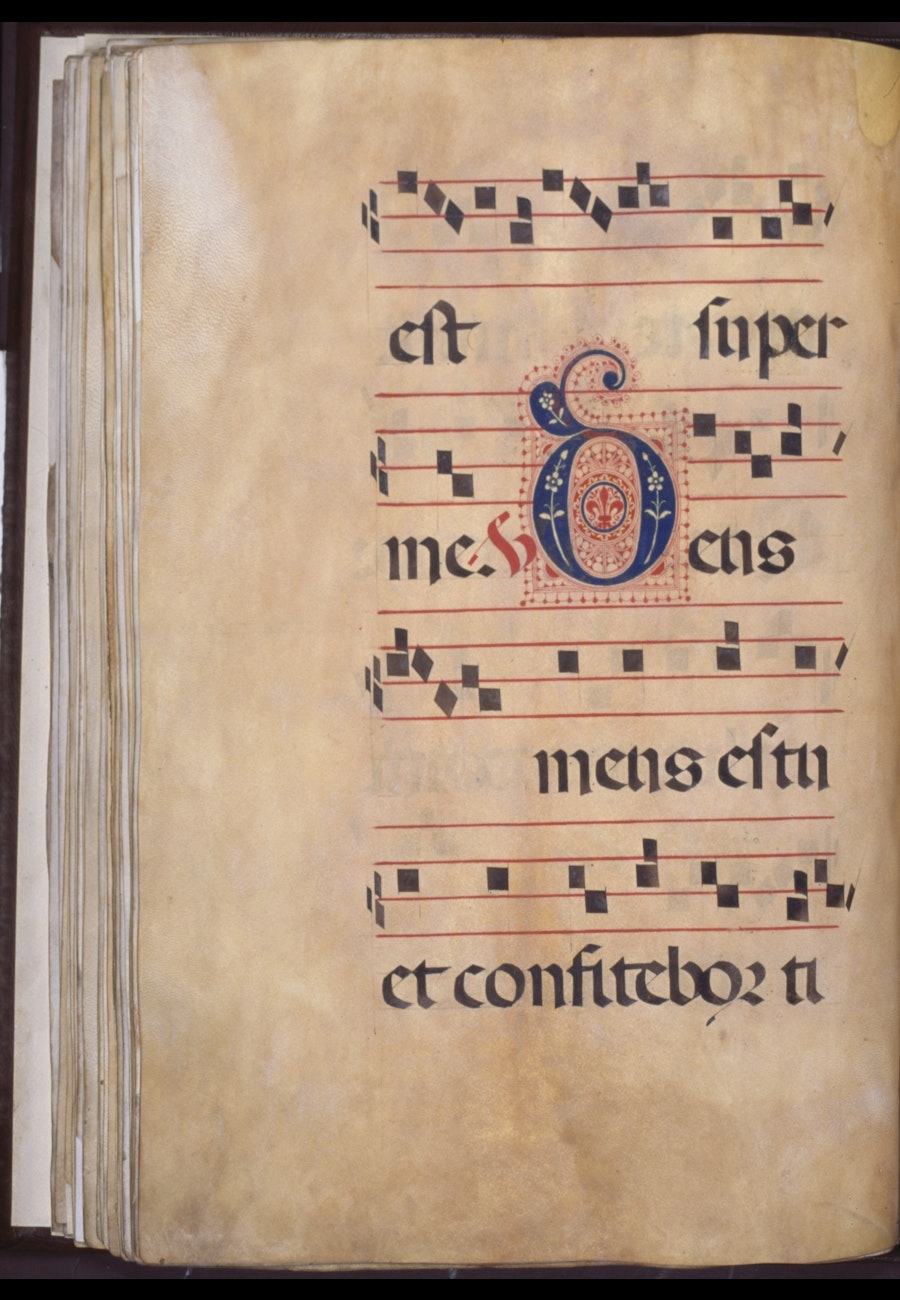 est super
me. V Deus
meus es tu
et confitebor ti